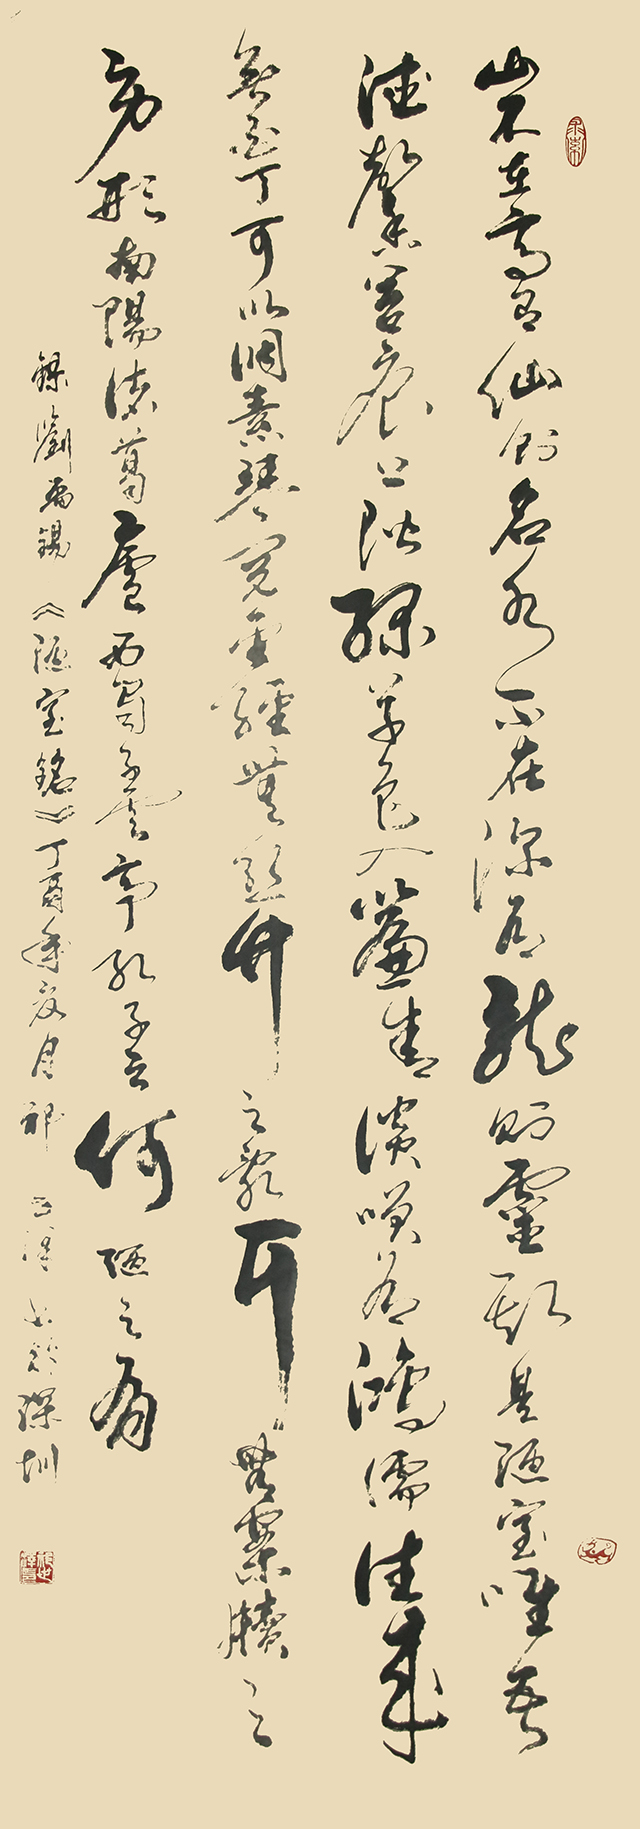 山不在高有仙則名水不在深有龍則靈斯是陋室唯吾
德馨苔痕上階綠草色入簾青談笑有鴻儒往來
無白丁可以調素琴閱金經無絲竹之亂耳無案牘之
勞形南陽諸葛廬西蜀子雲亭孔子云何陋之有
錄劉禹錫《陋室銘》丁酉年夏月祁 書於深圳